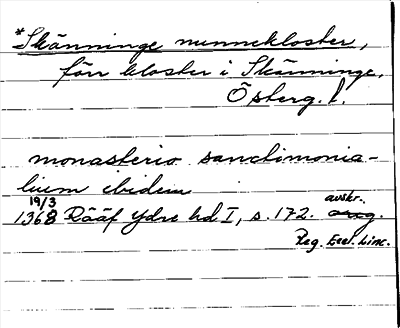 *Skänninge nunnekloster,
förr kloster i Skänninge,
Österg. l.
monasterio sanctimonia-
lium ibidem
19/3 avskr.
1368 Rääf Ydre hd I, s. 172. orig.
Reg. Eccl. Linc.